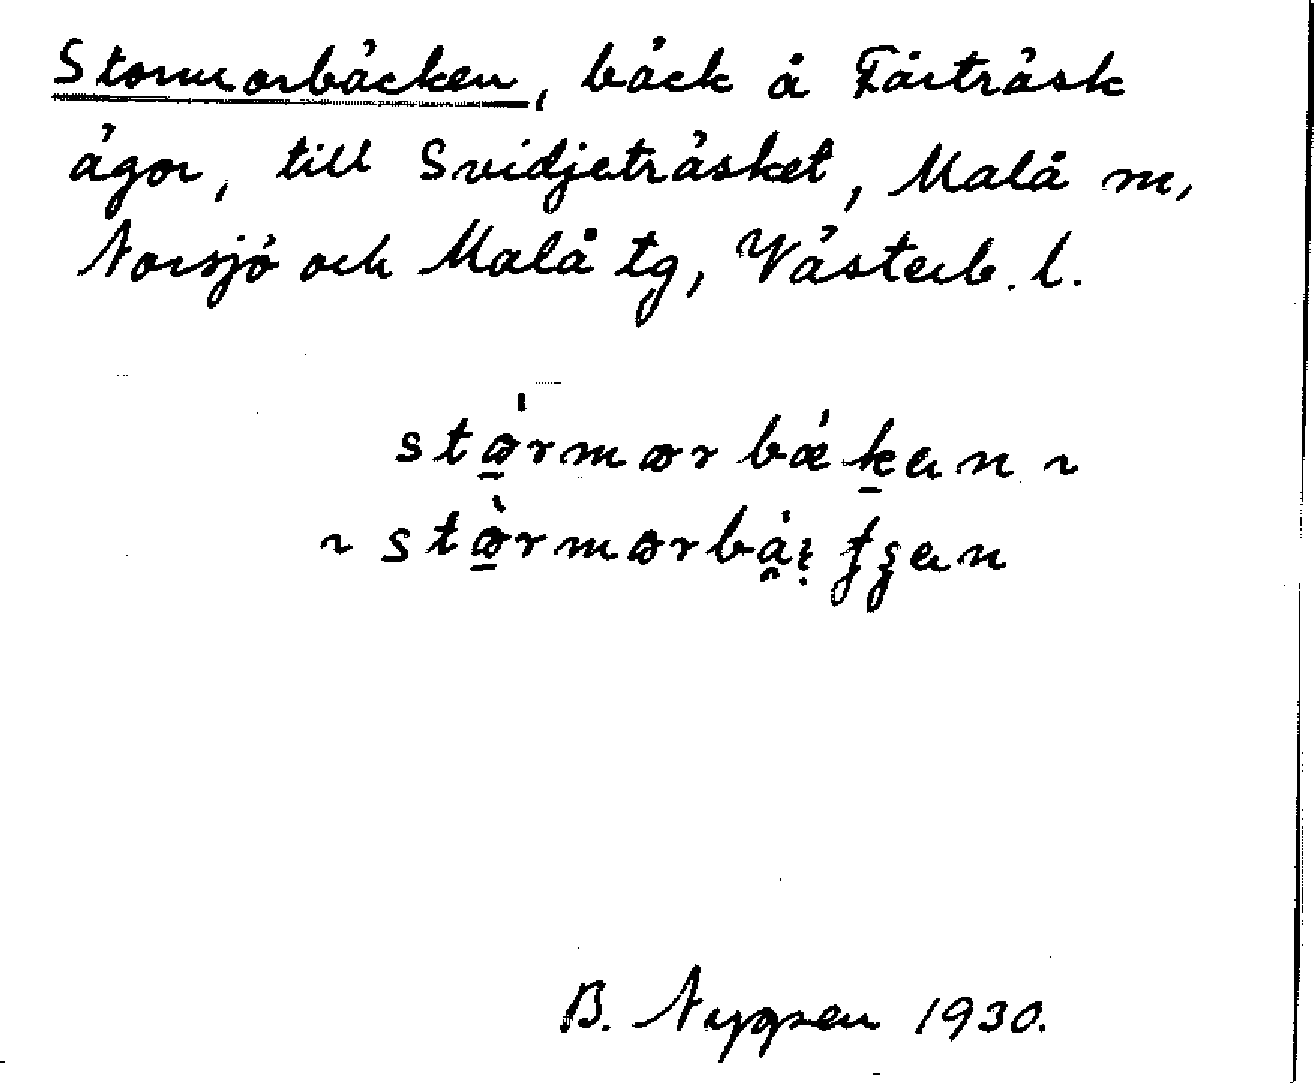 Stormorbäcken, bäck å Fårträsk
ägor, till Svidjeträsket, Malå m,
Norsjö och Malå tg, Västerb. l.
B. Nygren 1930.